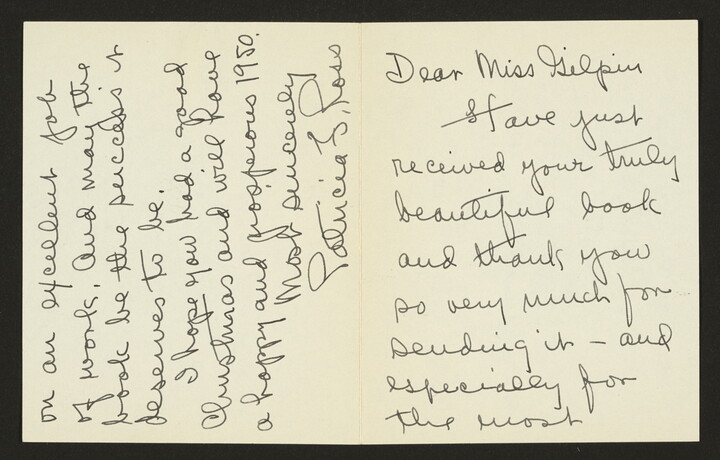 Dear Miss Gilpin
Have just
received your truly
beautiful book
and thank you
so very much for
sending it – and
especially for
the most
on an excellent job
of work. And may the
book be the success it
deserves to be.
I hope you had a good
Christmas and will have
a happy and prosperous 1950.
Most sincerely
Patricia S. Ross